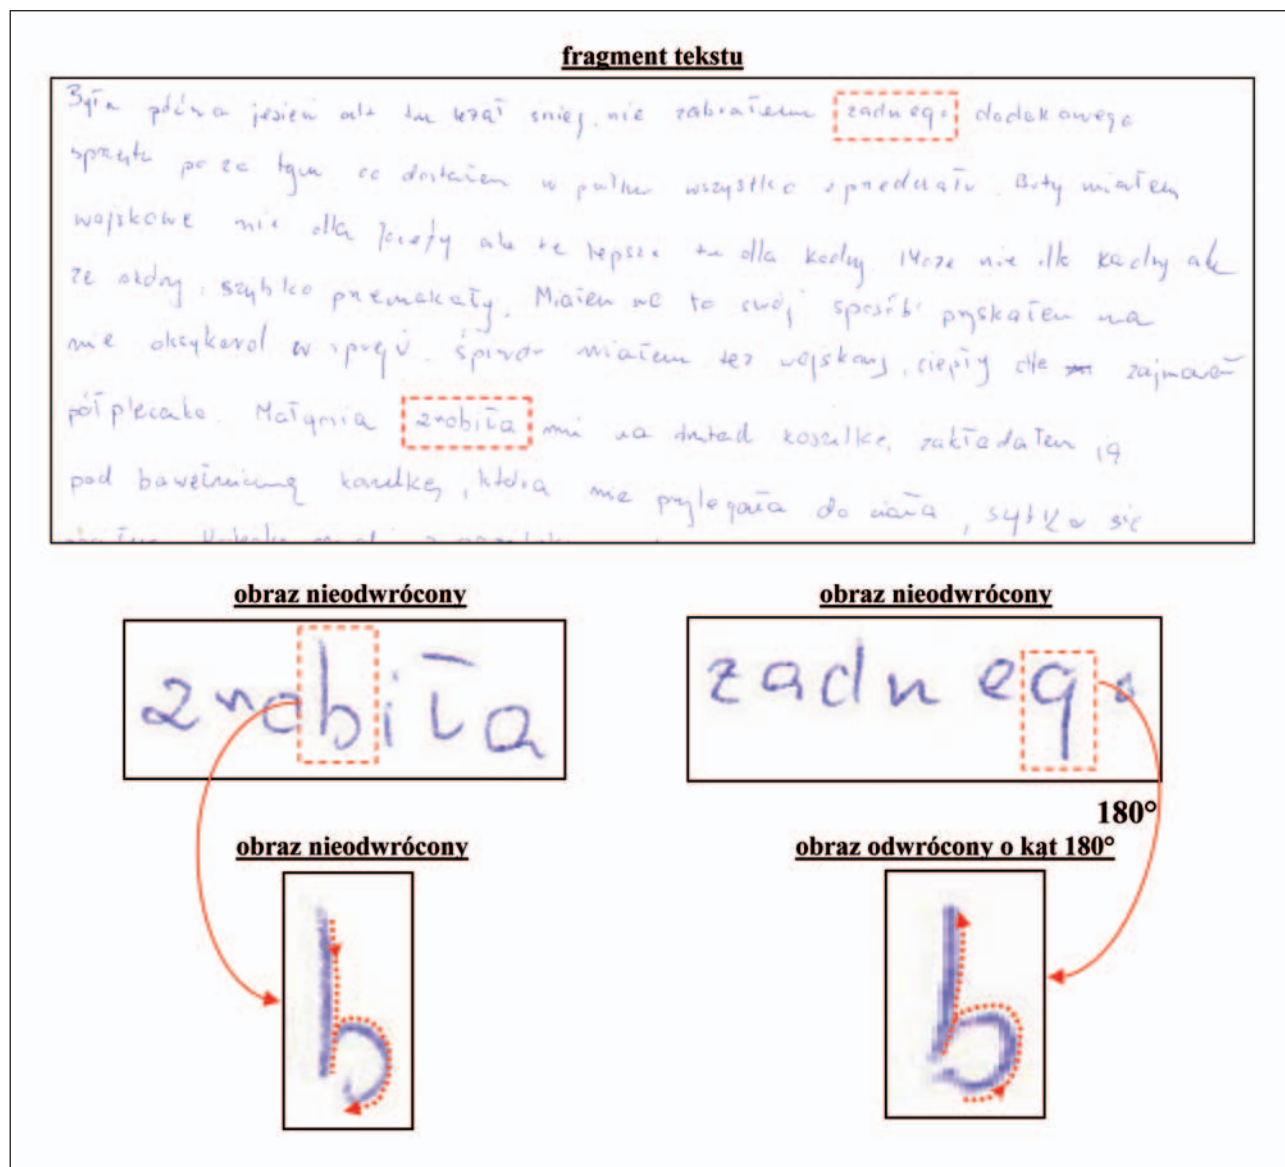 fragment tekstu
Była późna jesień ale tu leżał śnieg, nie zabrałem zadnego dodakowego
sprzętu po za tym co dostałem w pułku wszystko sprzedału. Buty miałem
wojskowe nie dla jazdy ale te lepsze dla kadry. nie dla kadry ale
ze skóry, szybko przemakały. Miałem na to swój sposób pryskałem na
nie oksykorol w spreju. Śpiwór miałem też wojskowy, ciepły ale zajmował
półplecaka. Małgosia zrobiła mi na koszulkę, zakładałem ją
pod bawełnianą, która nie przylegała do ciała, się
obraz nieodwrócony
obraz nieodwrócony
zrobiła
zadnego
180°
obraz nieodwrócony
obraz odwrócony o kąt 180°
b